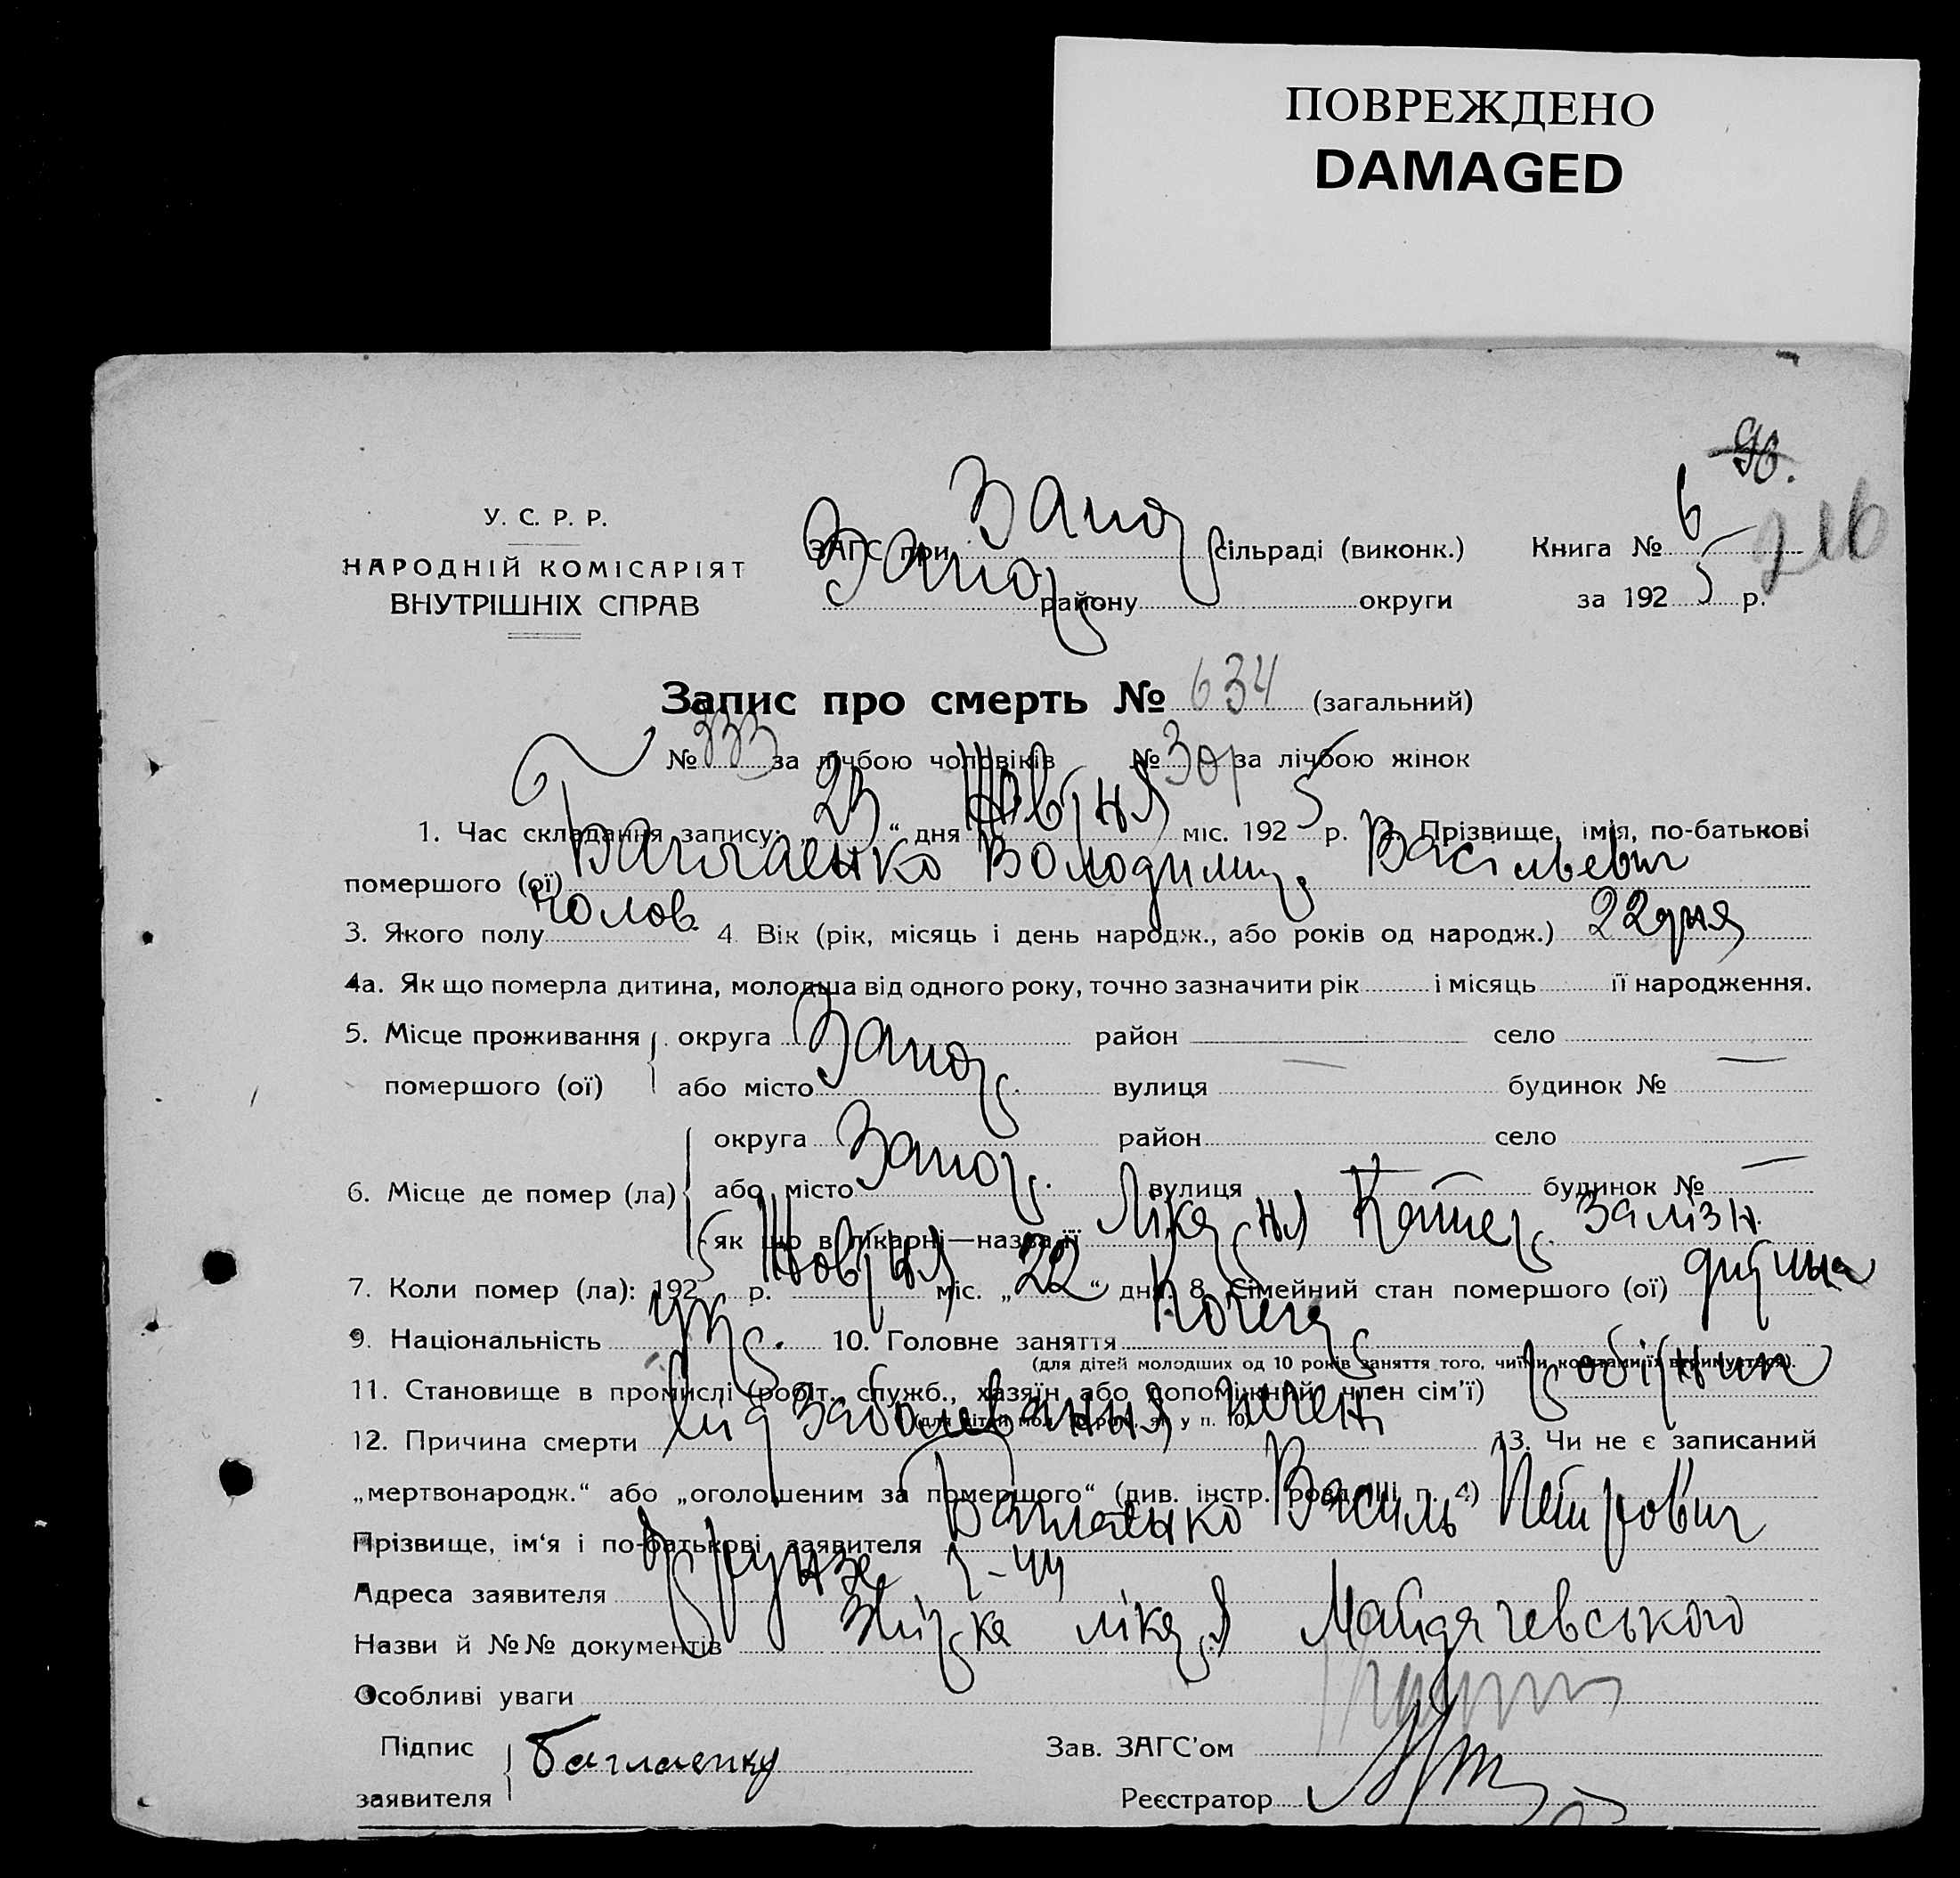 ПОВРЕЖДЕНО
DAMAGED
96.
У. С. Р. Р.
НАРОДНІЙ КОМІСАРІЯТ
ВНУТРІШНІХ СПРАВ
ЗАГС при Запор сільраді (виконк.) Книга № 6 216
Запор району округи за 1925 р.
Запис про смерть № 634 (загальний)
№ 333 за лічбою чоловіків № 301 за лічбою жінок
1. Час складання запису: „23“ дня Жовтня міс. 1925 р. 2. Прізвище, імія, по-батькові
Баглаенко Володимир Васільевич
помершого (ої)
3. Якого полу чолов. 4 Вік (рік, місяць і день народж., або років од народж.) 22 дня
4а. Як що померла дитина, молодша від одного року, точно зазначити рік і місяць її народження.
5. Місце проживання округа Запор. район село
помершого (ої) або місто вулиця будинок №
округа Запор. район село
6. Місце де помер (ла) або місто вулиця будинок №
як що в лікарні—назва її Лікарня Катер. Залізн.
7. Коли помер (ла): 1925 р. Жовтня міс. „22“ дня. 8. Сімейний стан помершого (ої) дитина
9. Національність Укр. 10. Головне заняття Кочегар
(для дітей молодших од 10 років заняття того, чиїми коштами їх втримується).
11. Становище в промислі (робіт., служб., хазяїн або допоміжний член сім’ї) робітник
(для дітей мол. 10 рок., як у п. 10)
12. Причина смерти від заболевания печені 13. Чи не є записаний
„мертвонародж.“ або „оголошеним за помершого“ (див. інстр. розд. III п. 4)
Прізвище, ім‘я і по-батькові заявителя Баглаенко Василь Петрович
Адреса заявителя Фрунзе
Назви й №№ документів лікаря Майдачевського
Особливі уваги
Підпис Баглаенко Зав. ЗАГС’ом
заявителя Реєстратор